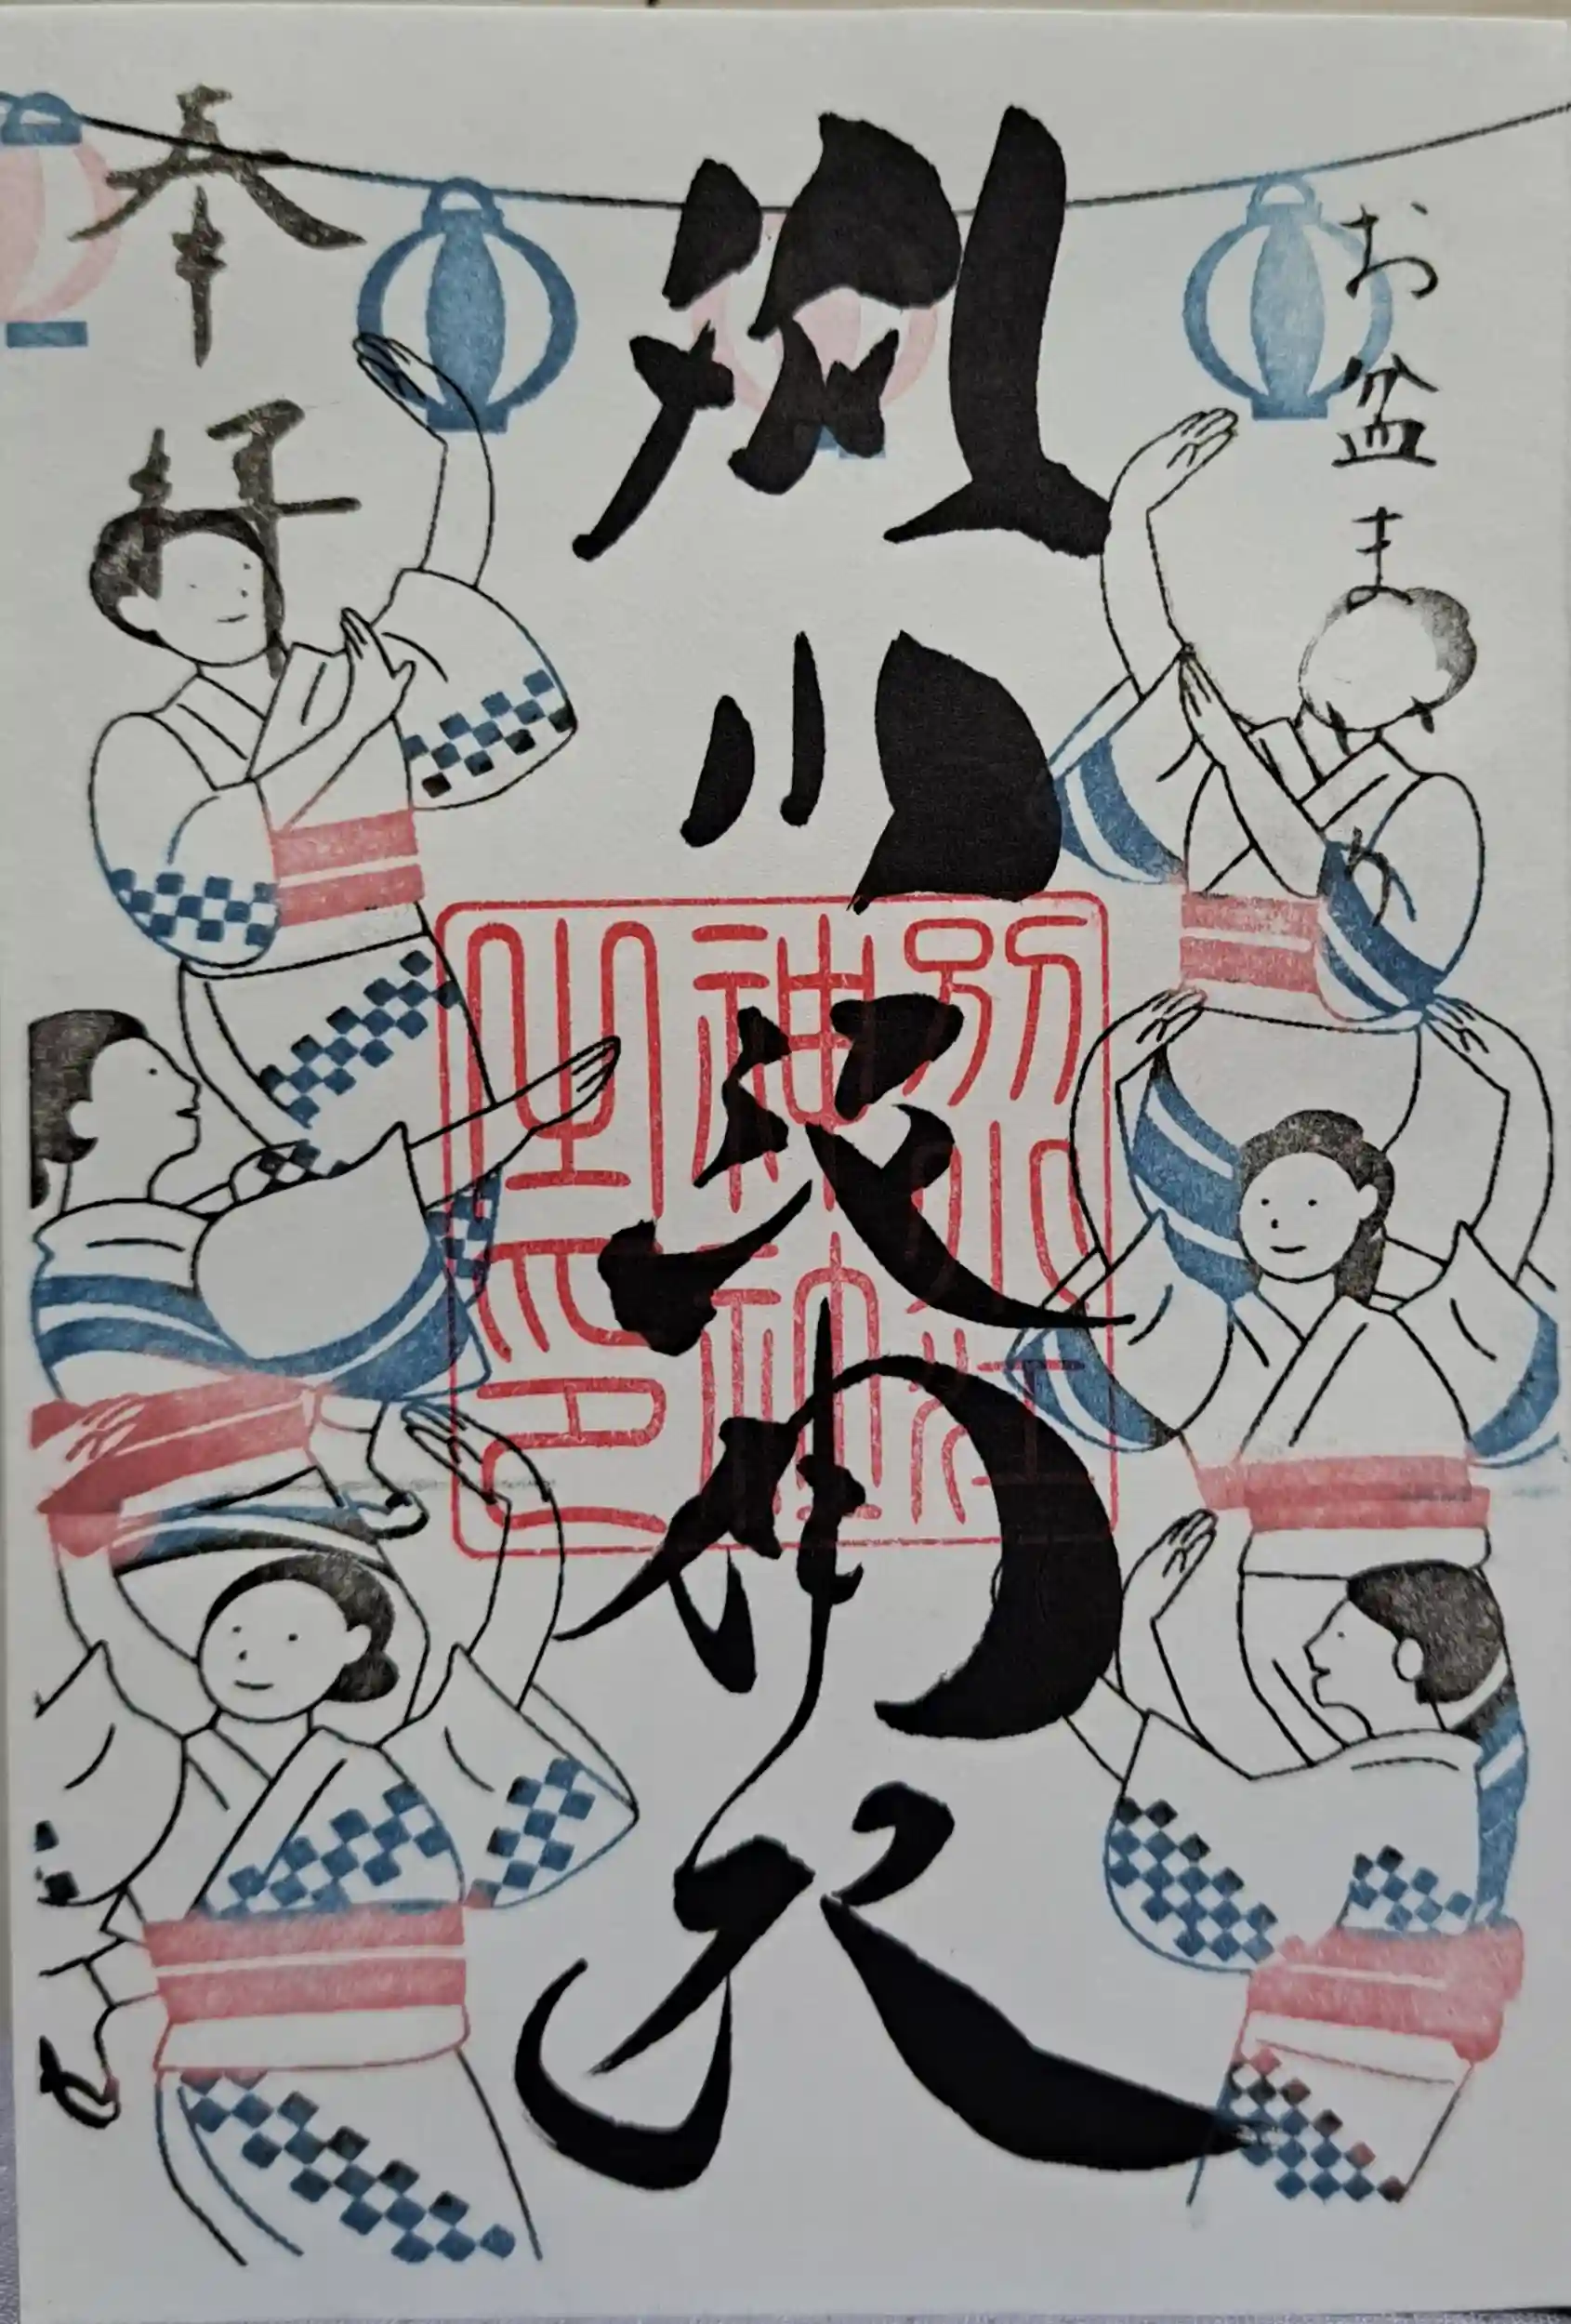 お盆まつり
別小江神社
奉拝
別小江
神社
之印